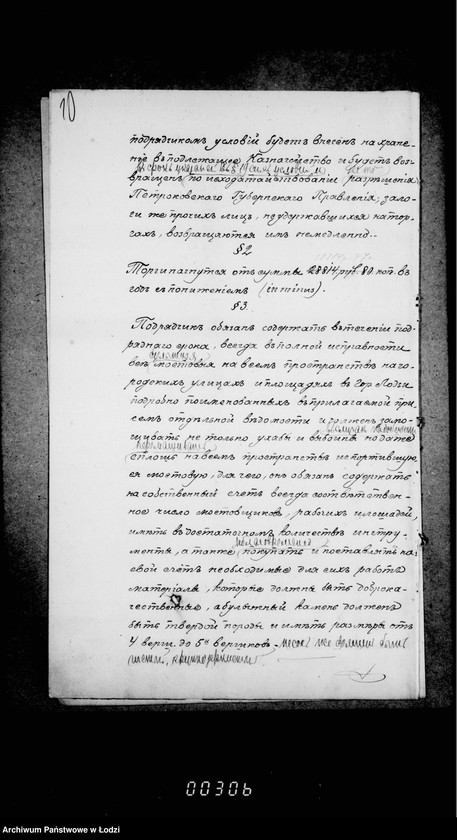 10
подрядчикомъ условій будетъ внесенъ на хране-
ніе въ подлежащее Казначейство и будетъ воз-
вращенъ по исходатайствованіи разрѣшенія
Петроковскаго Губернскаго Правленія, зало-
ги же прочихъ лицъ, неудержавшихся на тор-
гахъ, возвращаются имъ немедленно.
§ 2
Торги начнутся отъ суммы 28814 руб. 80 коп. въ
годъ съ пониженіемъ (in minus).
§ 3.
Подрядчикъ обязанъ содержать въ теченіи под-
ряднаго срока, всегда въ полной исправности
всѣ мостовыя на всемъ пространствѣ на го-
родскихъ улицахъ и площадяхъ въ Гор. Лодзи
подробно поименованныхъ въ прилагаемой при
семъ отдѣльной вѣдомости и долженъ замо-
щивать не только ухабы и выбоины но даже
сплошь на всемъ пространствѣ испортившую-
ся мостовую, для чего, онъ обязанъ содержать
на собственный счетъ всегда соотвѣтствен-
ное число мостовщиковъ, рабочихъ и лошадей,
имѣть въ достаточномъ количествѣ инстру-
менты, а также покупать и поставлять на
свой счетъ необходимые для сихъ работъ
матеріалы, которые должны быть доброка-
чественные, а булыжный камень долженъ
быть твердой породы и имѣть размѣра отъ
4 верш. до 5ти вершковъ, песокъ же долженъ быть
чистый, крупнозернистый
00306
Archiwum Państwowe w Łodzi